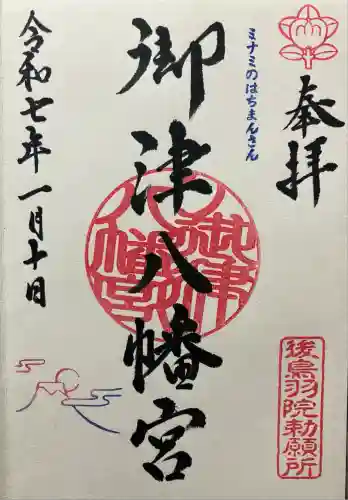 奉拝
ミナミのはちまんさん
御津八幡宮
令和七年一月十日
後鳥羽院勅願所
御津八幡宮